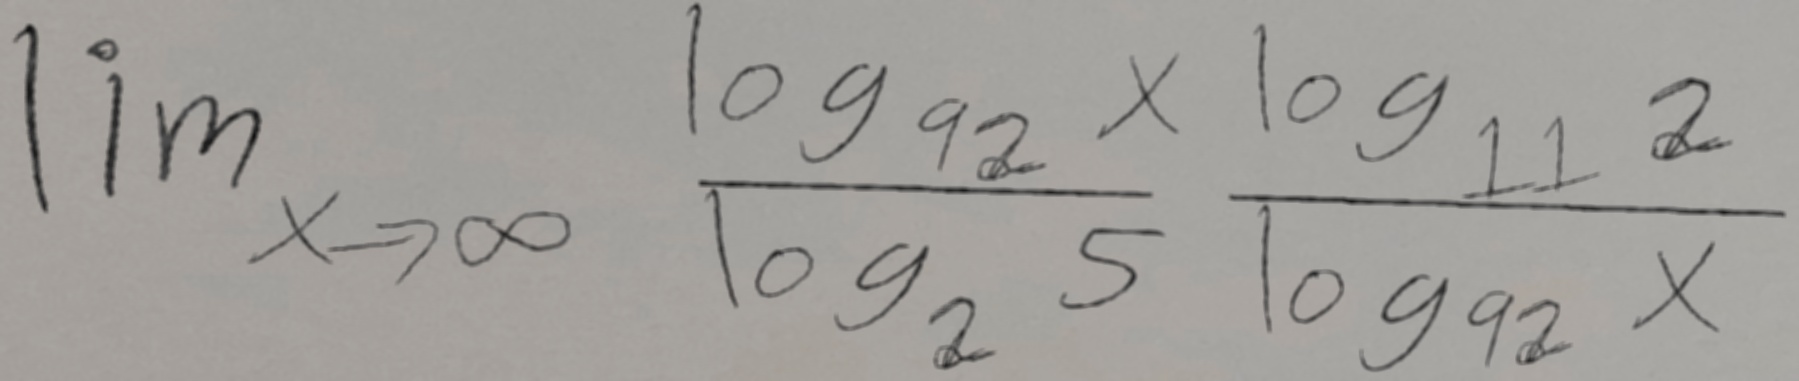 lim_{x→∞} \frac{log_{92} x}{log_2 5} \frac{log_{11} 2}{log_{92} x}